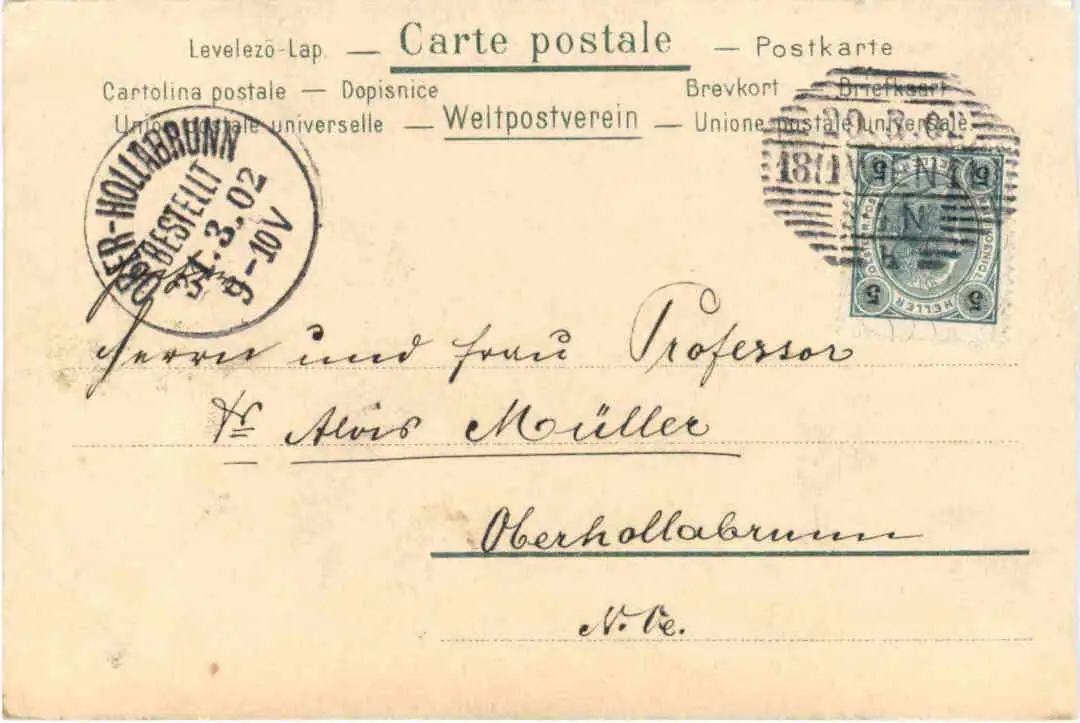 Levelezö-Lap. — Carte postale — Postkarte
Cartolina postale — Dopisnice Brevkort — Briefkaart
Union postale universelle — Weltpostverein — Unione postale universale.
OBER-HOLLABRUNN
BESTELLT
31.3.02
9-10V
20.3.02
18/1 WIEN 1
5 5
5 HELLER 5
Herrn und Frau Professor
Dr Alois Müller
Oberhollabrunn
N. Oe.